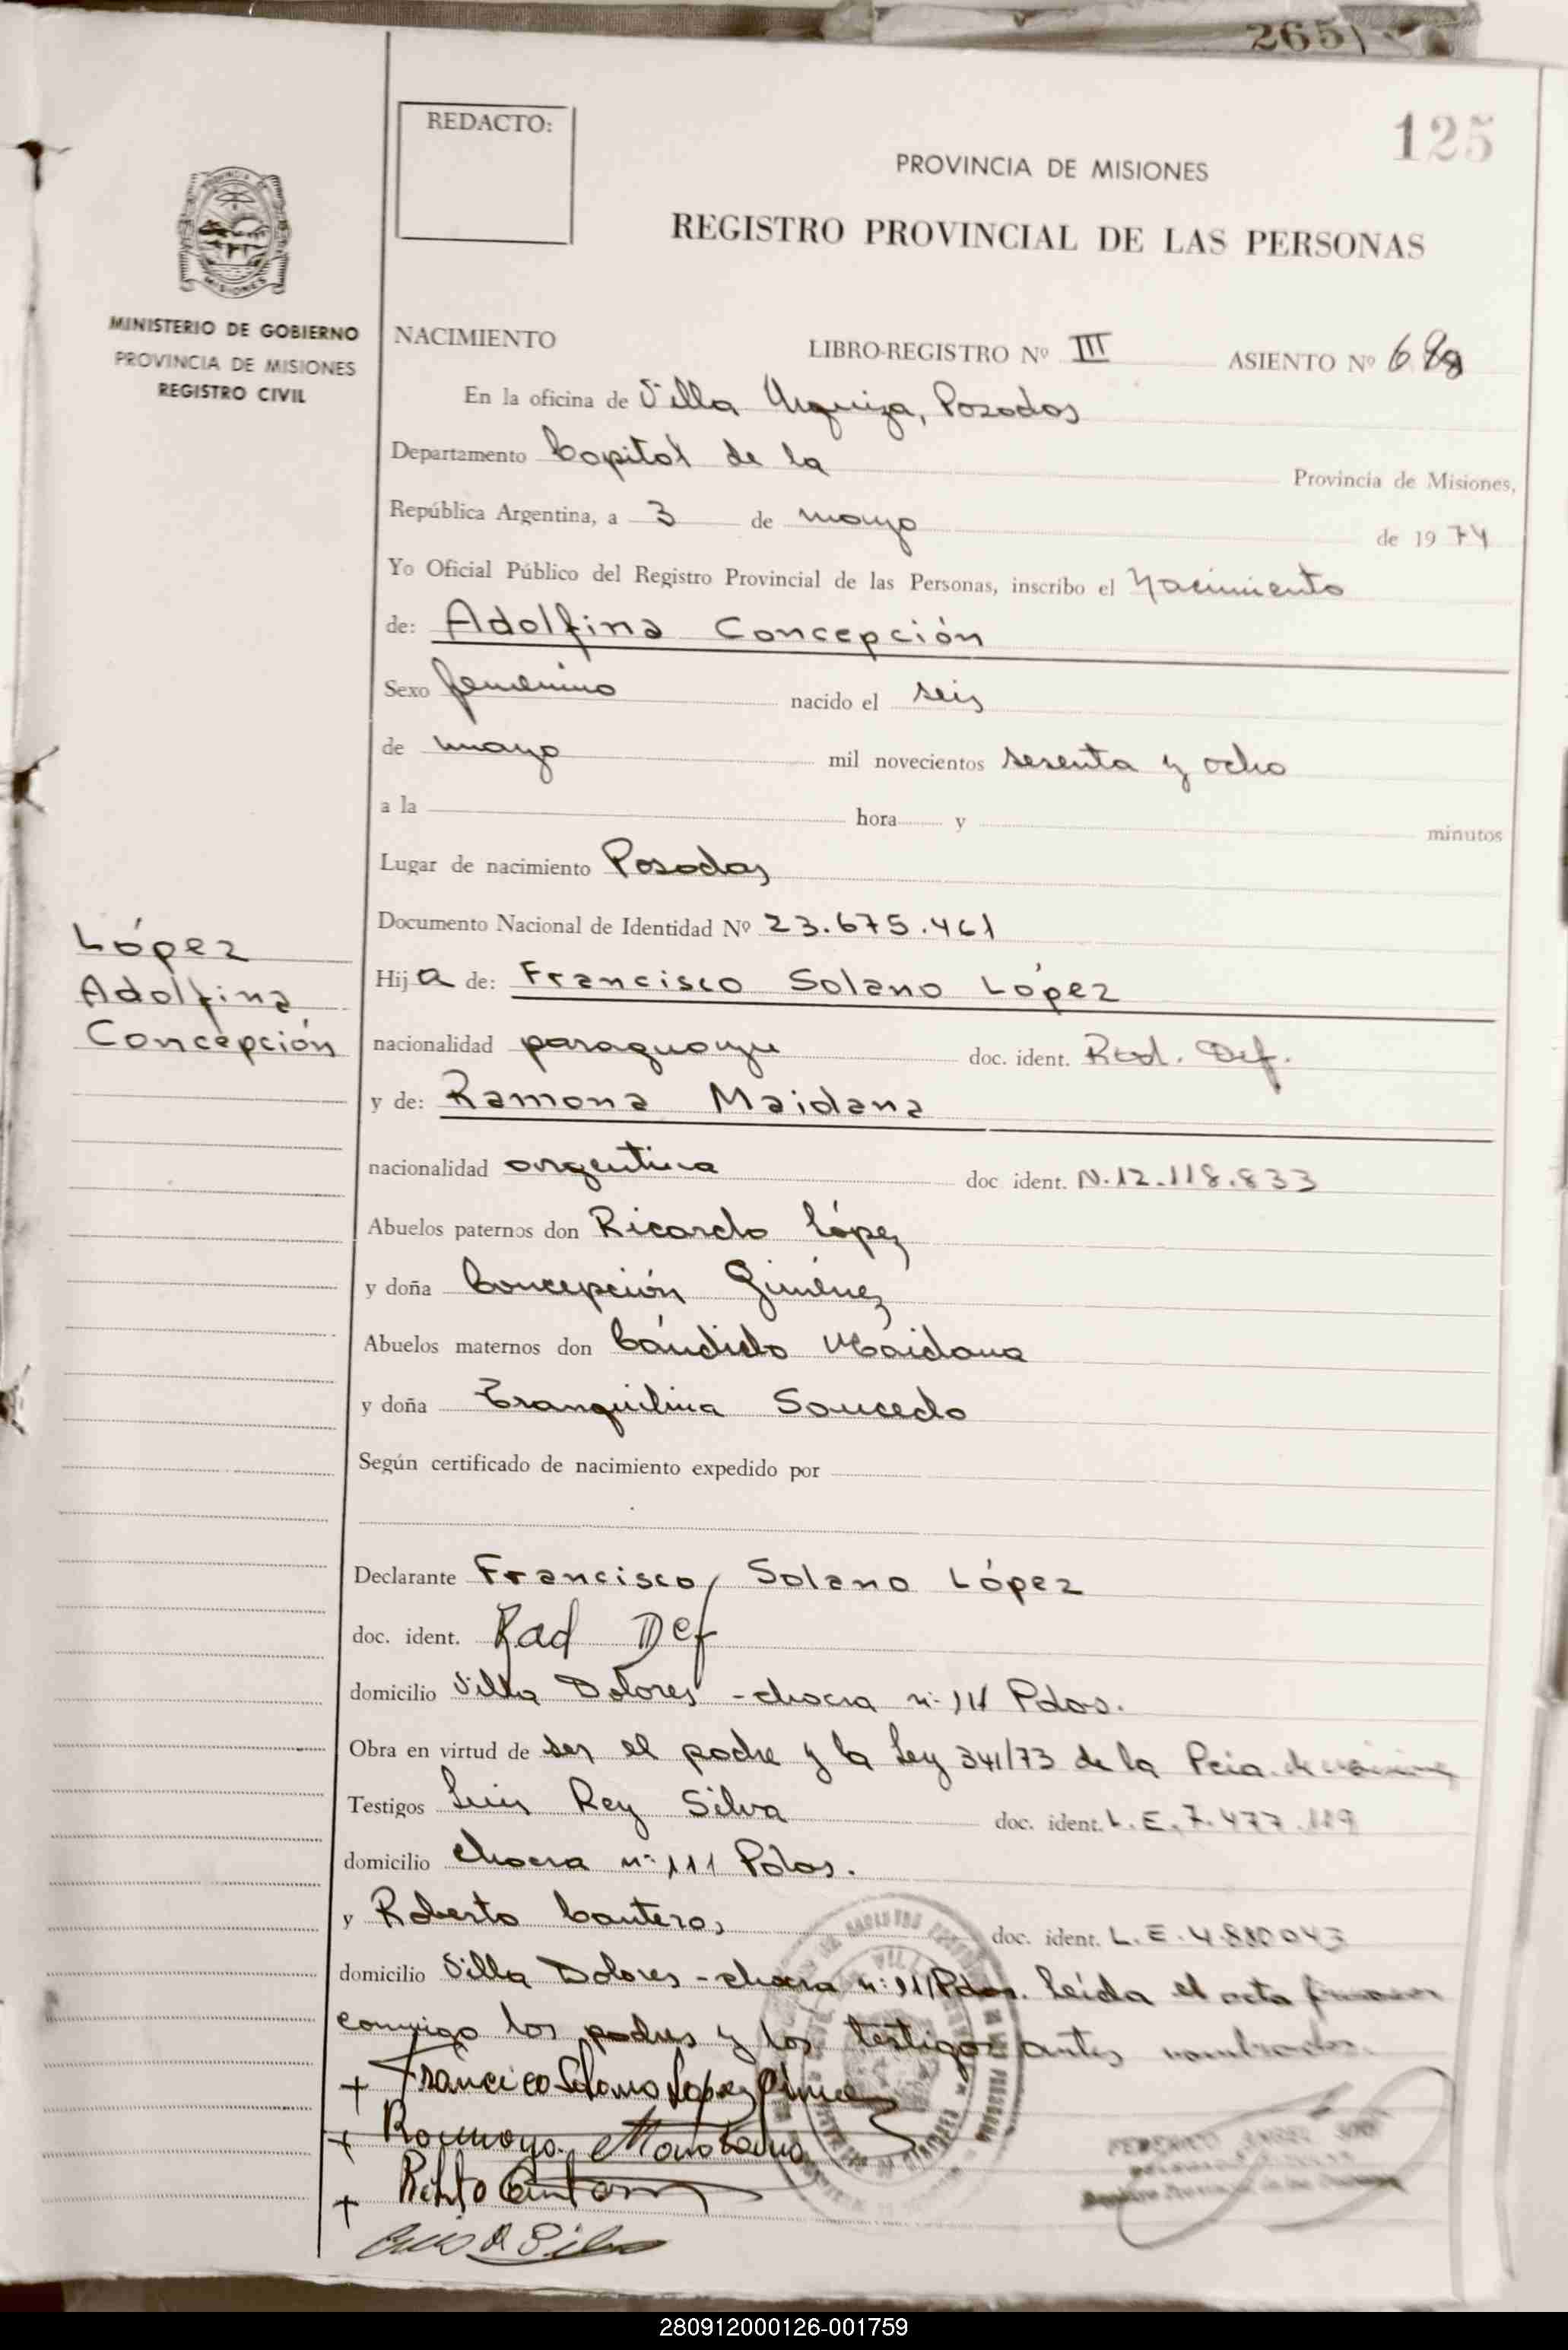 265
125
REDACTO:
PROVINCIA DE MISIONES
REGISTRO PROVINCIAL DE LAS PERSONAS
MISIONES
MINISTERIO DE GOBIERNO
PROVINCIA DE MISIONES
REGISTRO CIVIL
NACIMIENTO
LIBRO-REGISTRO Nº III ASIENTO Nº
En la oficina de Villa Urquiza, Posadas
Departamento Capital de la Provincia de Misiones,
República Argentina, a 3 de mayo de 1974
Yo Oficial Público del Registro Provincial de las Personas, inscribo el Nacimiento
de: Adolfina Concepción
Sexo femenino nacido el seis
de mayo mil novecientos sesenta y ocho
a la hora y minutos
Lugar de nacimiento Posadas
Documento Nacional de Identidad Nº 23.675.461
López
Adolfina
Concepción
Hija de: Francisco Solano López
nacionalidad paraguayo doc. ident. Rad. Def.
y de: Ramona Maidana
nacionalidad argentina doc ident. N.12.118.833
Abuelos paternos don Ricardo López
y doña Concepción Giménez
Abuelos maternos don Cándido Maidana
y doña Tranquilina Saucedo
Según certificado de nacimiento expedido por
Declarante Francisco Solano López
doc. ident. Rad Def
domicilio Villa Dolores - chacra nº 111 Pdas.
Obra en virtud de ser el padre y la Ley 341/73 de la Pcia. de Misiones
Testigos Luis Rey Silva doc. ident. L.E. 7.477.119
domicilio chacra nº 111 Pdas.
y Roberto Cantero, doc. ident. L.E. 4.880043
domicilio Villa Dolores - chacra nº 111 Pdas. Leída el acta firman
conmigo los padres y los testigos antes nombrados.
+ Francisco Solano Lopez
+
+
FEDERICO ANGEL
280912000126-001759